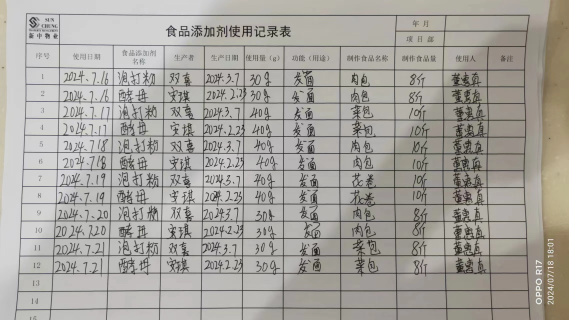 SUN CHUNG
新中物业
食品添加剂使用记录表
年 月
项目部
序号 使用日期 食品添加剂名称 生产者 生产日期 使用量（g） 功能（用途） 制作食品名称 制作食品量 使用人 备注
1 2024.7.16 泡打粉 双喜 2024.3.7 30g 发面 肉包 8斤
2 2024.7.16 酵母 安琪 2024.2.23 30g 发面 肉包 8斤
3 2024.7.17 泡打粉 双喜 2024.3.7 40g 发面 菜包 10斤
4 2024.7.17 酵母 安琪 2024.2.23 40g 发面 菜包 10斤
5 2024.7.18 泡打粉 双喜 2024.3.7 40g 发面 肉包 10斤
6 2024.7.18 酵母 安琪 2024.2.23 40g 发面 肉包 10斤
7 2024.7.19 泡打粉 双喜 2024.3.7 40g 发面 花卷 10斤
8 2024.7.19 酵母 安琪 2024.2.23 40g 发面 花卷 10斤
9 2024.7.20 泡打粉 双喜 2024.3.7 30g 发面 肉包 8斤
10 2024.7.20 酵母 安琪 2024.2.23 30g 发面 肉包 8斤
11 2024.7.21 泡打粉 双喜 2024.3.7 30g 发面 菜包 8斤
12 2024.7.21 酵母 安琪 2024.2.23 30g 发面 菜包 8斤
13
14
15
OPPO R17
2024/07/18 18:01